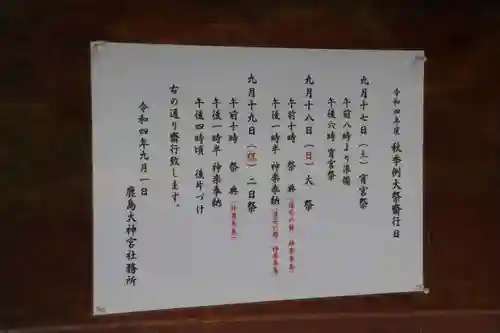 令和四年度 秋季例大祭齋行日
九月十七日（土）宵宮祭
午前八時より準備
午後六時 宵宮祭
九月十八日（日）大 祭
午前十時 祭 典
午後一時半 神楽奉納
九月十九日（祝）二日祭
午前十時 祭 典
午後一時半 神楽奉納
午後四時頃 後片づけ
右の通り齋行致します。
令和四年九月一日
鹿島大神宮社務所